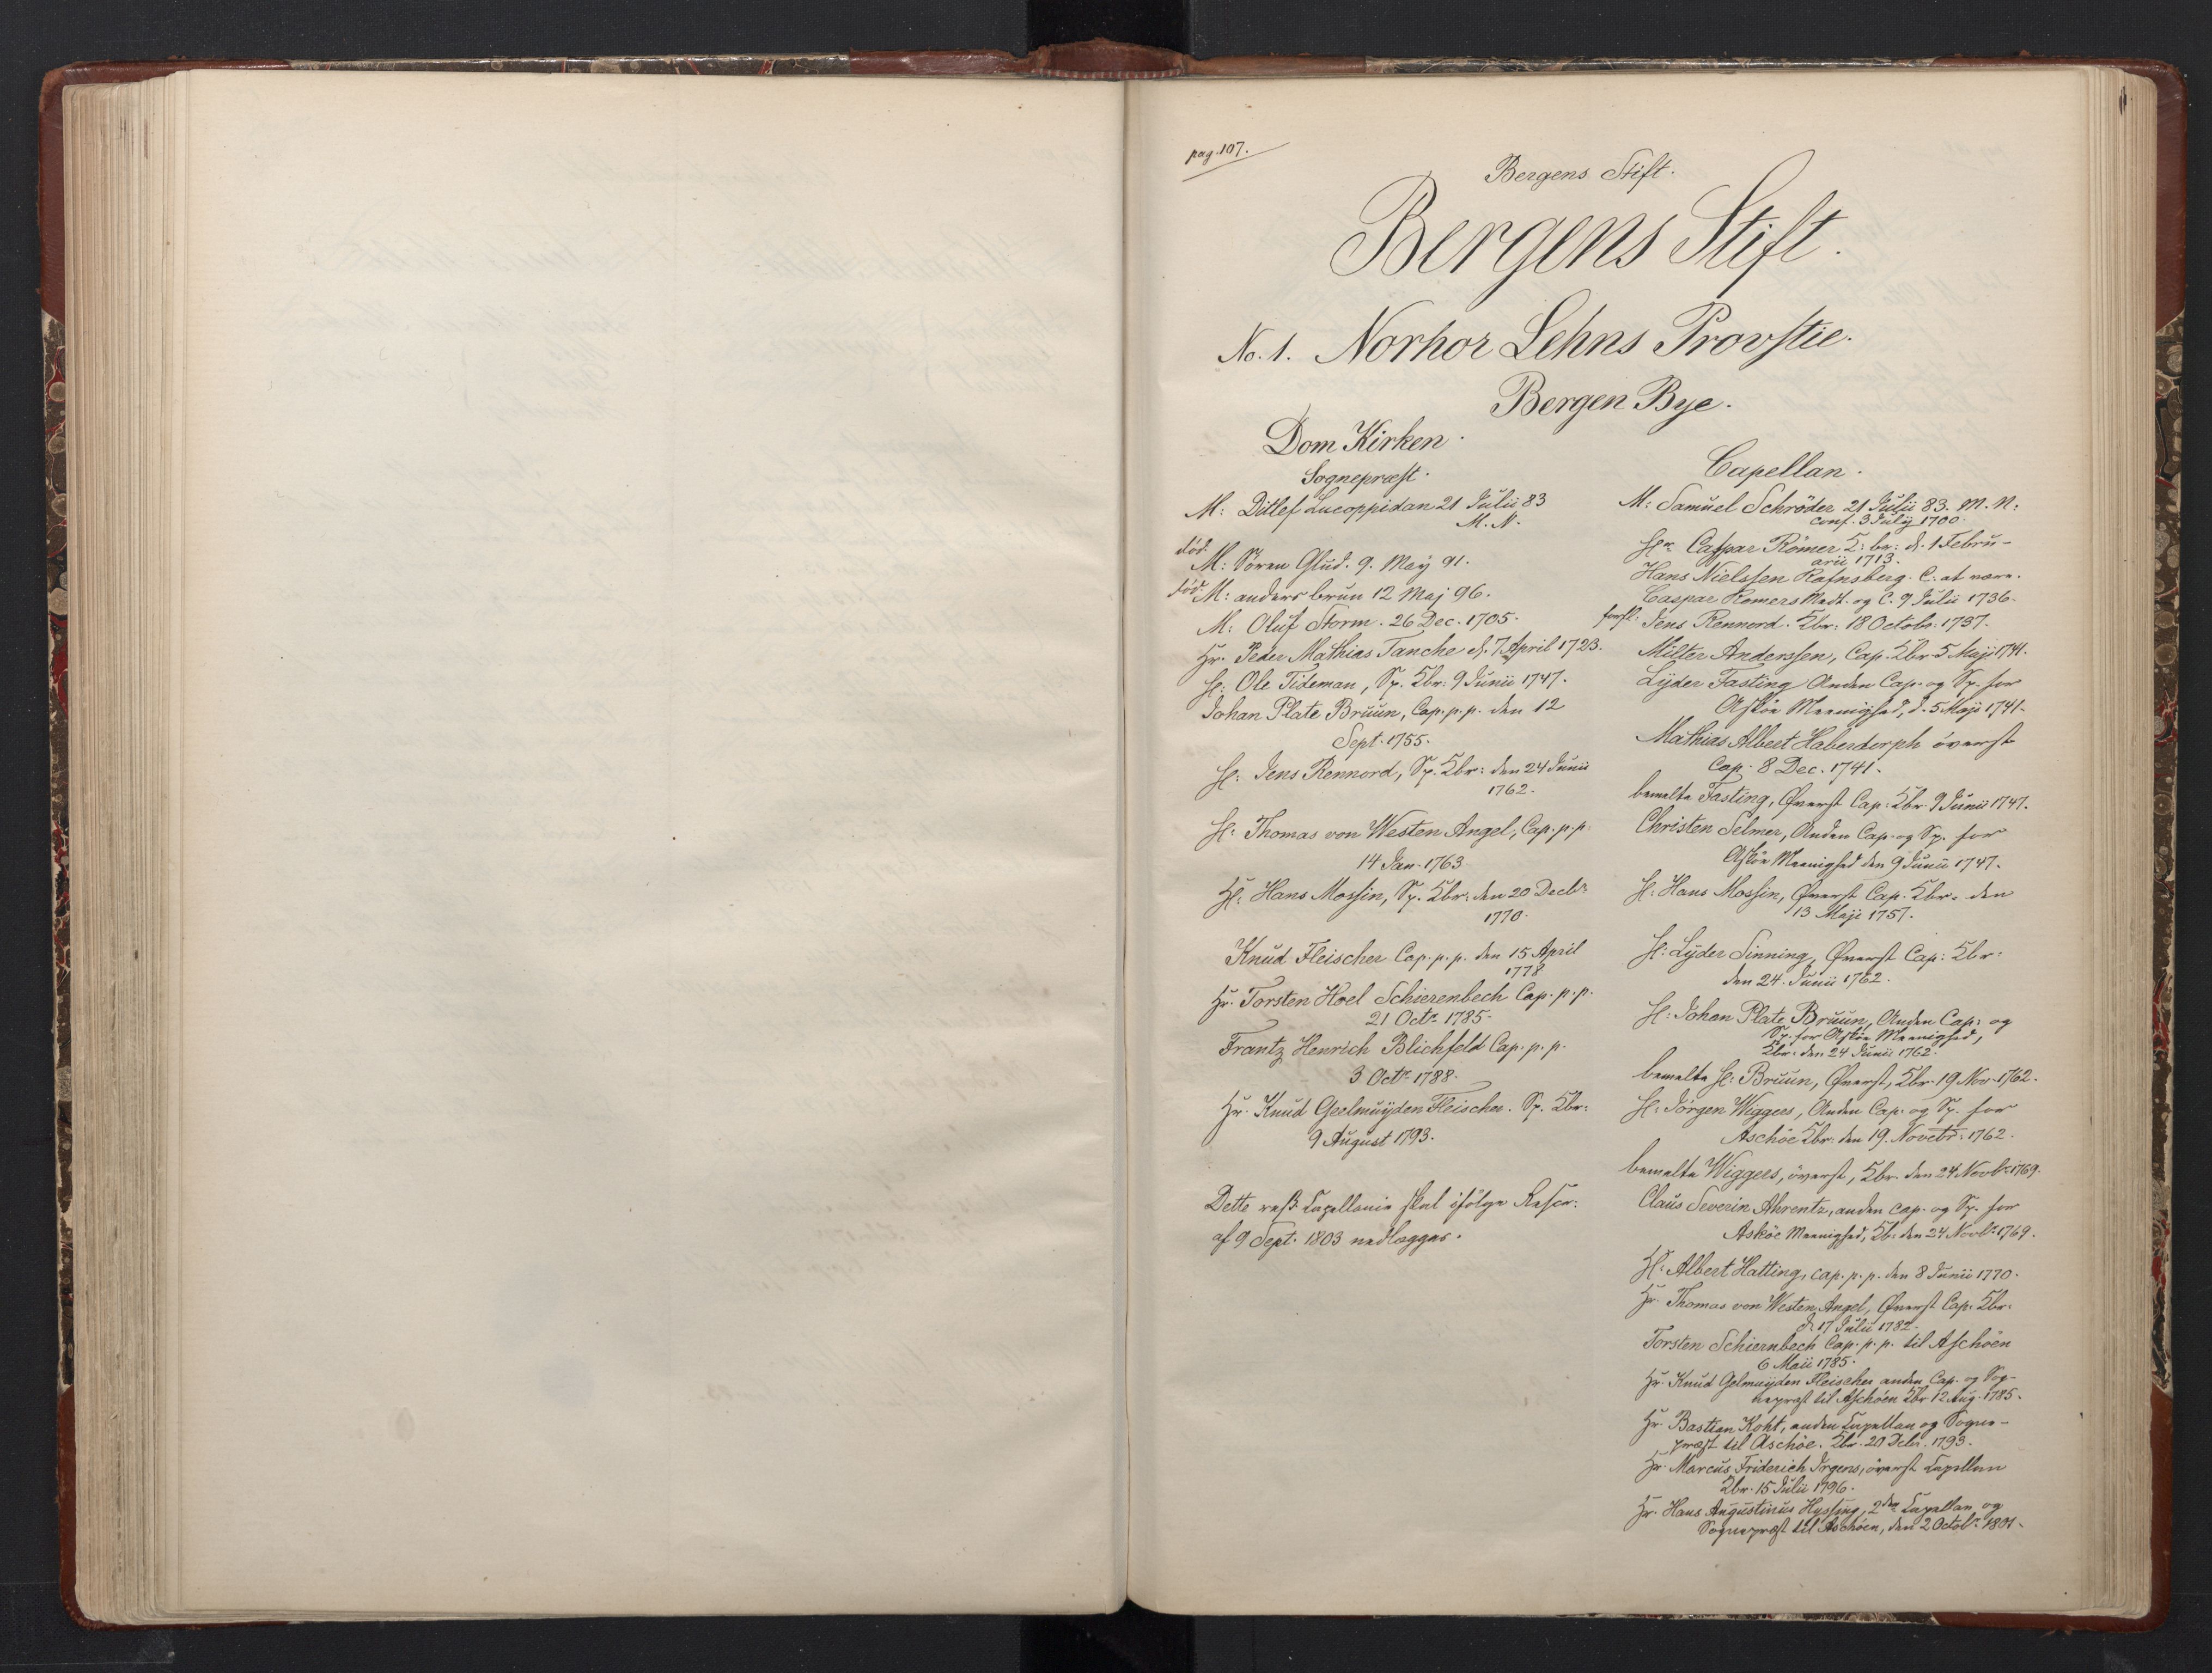 pag. 107.
Bergens Stift.
Bergens Stift.
No. 1. Norhor Lehns Provstie.
Bergen Bye.
Dom Kirken.
Sognepræst.
M: Ditlef Lucoppidan 21 Julii 83
M. N.
død.
M: Sören Glud. 9. Maÿ 91.
død. M: anders brun 12 Maj 96.
M: Oluf Storm. 26 Dec. 1705.
Hr. Peder Mathias Tanche d. 7 April 1723.
H: Ole Tideman, Sp. Kbr: 9 Junii 1747.
Johan Plate Bruun, Cap. p. p. den 12
Sept. 1755.
H: Jens Rennord, Sp. Kbr: den 24 Junii
1762.
H: Thomas von Westen Angel, Cap. p. p.
14 Jan. 1763
H: Hans Mossin, Sp. Kbr: den 20 Decbr
1770.
Knud Fleischer Cap. p. p. den 15 April
1778
Hr. Torsten Hoel Schierenbech Cap. p. p.
21 Octr 1785.
Frantz Henrich Blichfeld Cap. p. p.
3 Octr 1788.
Hr. Knud Geelmuÿden Fleischer. Sp. Kbr:
9 August 1793.
Dette resk Capellanie skal ifölge Rescr:
af 9 Sept. 1803 nedlægges.
Capellan.
M: Samuel Schröder 21 Julii 83. M. N:
conf. 3 Julij 1700.
Hr Caspar Römer K: br: d. 1 Febru-
arii 1713.
Hans Nielssen Rafnsberg. C. at være.
Caspar Römers Medt. og C. 9 Julii 1736.
forfl: Jens Rennord. Kbr: 18 Octobr: 1737.
Milter Anderssen, Cap. Kbr 5 Maji 1741.
Lÿder Fasting Anden Cap. og Sp. for
Askøe Meenighed, d. 5 Maji 1741.
Mathias Albert Haberdorph överst
Cap. 8 Dec. 1741.
bemelte Fasting, Øverst Cap: Kbr. 9 Junii 1747.
Christen Selmer, Anden Cap. og Sp. for
Askøe Meenighed den 9 Junii 1747.
H: Hans Mossin, Øverst Cap. Kbr. den
13 Maji 1757.
H: Lÿder Sinning, Øverst Cap: Kbr:
den 24. Junii 1762.
H: Johan Plate Bruun, Anden Cap: og
Sp. for Askøe Meenighed,
Kbr. den 24 Junii 1762.
bemelte H: Bruun, Øverst, Kbr. 19 Nov. 1762.
H: Jörgen Wiggers, Anden Cap. og Sp. for
Aschöe Kbr: den 19. Novebr. 1762.
bemelte Wiggers, överst, Kbr. den 24 Novbr 1769.
Claus Severin Ahrentz, anden cap. og Sp. for
Asköe Meenighed, Kb: den 24 Novbr 1769.
H: Albert Hatting, cap. p. p. den 8 Junii 1770.
Hr. Thomas von Westen Angel, Øverst Cap. Kbr.
d. 17 Julii 1782.
Torsten Schiernbech Cap. p. p. til Aschöen
6 Maii 1785.
Hr. Knud Gelmuÿden Fleischer anden Cap. og Sog-
nepræst til Aschöen Kbr 12 Aug. 1785.
Hr. Bastian Koht, anden Capellan og Sogne-
præst til Aschöe. Kbr. 20 Decbr. 1793.
Hr. Marcus Friderich Irgens, överst Capellan
Kbr. 15 Julii 1796.
Hr. Hans Augustinus Hyssing, 2den Capellan og
Sognepræst til Aschöen, den 2 Octobr 1801.